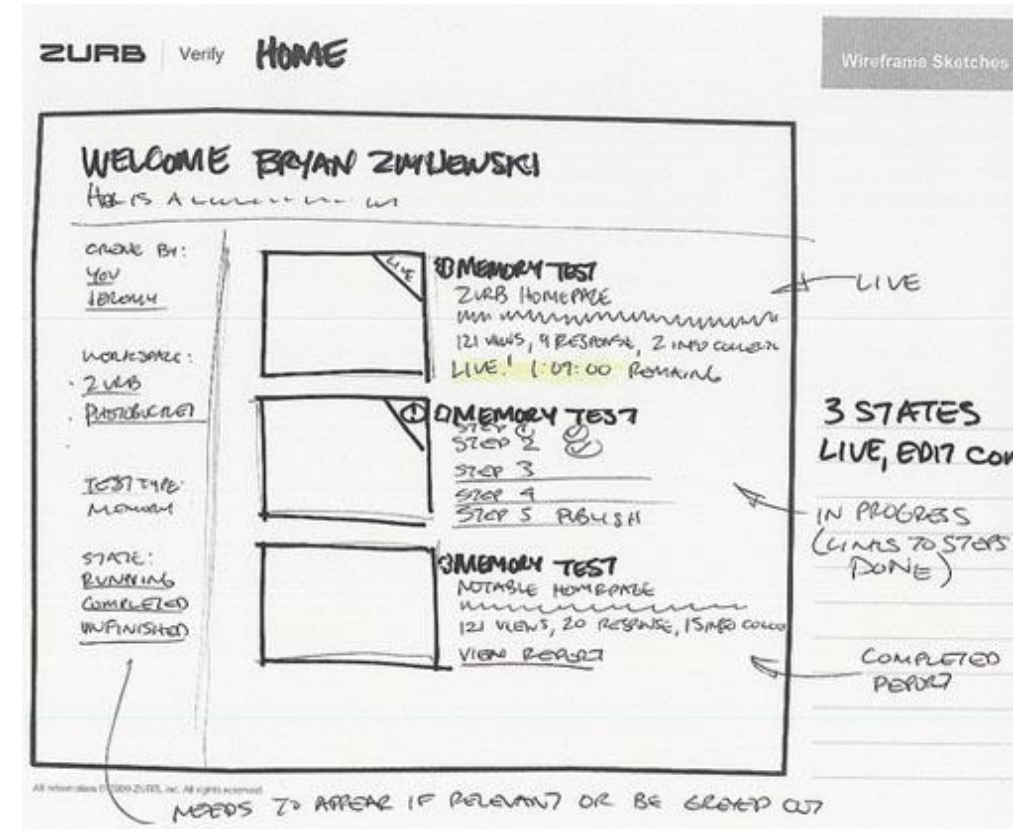 ZURB Verify HOME
Wireframe Sketches
WELCOME BRYAN ZMIJEWSKI
IS A
BY:
YOU
JEROMY
WORKSPACE:
ZURB
PHOTOBUCKET
TEST TYPE:
MEMORY
STATE:
RUNNING
COMPLETED
UNFINISHED
LIVE
MEMORY TEST
ZURB HOMEPAGE
121 VIEWS, 9 RESPONSE, 2 INFO
LIVE! 1:07:00 REMAINING
!
MEMORY TEST
STEP 1
STEP 2
STEP 3
STEP 4
STEP 5 PUBLISH
MEMORY TEST
NOTABLE HOMEPAGE
121 VIEWS, 20 RESPONSE, 15 INFO
VIEW REPORT
LIVE
3 STATES
LIVE, EDIT COM
IN PROGRESS
(LINKS TO STEPS
DONE)
COMPLETED
REPORT
All information © 2009 ZURB, inc. All rights reserved.
NEEDS TO APPEAR IF RELEVANT OR BE GREYED OUT